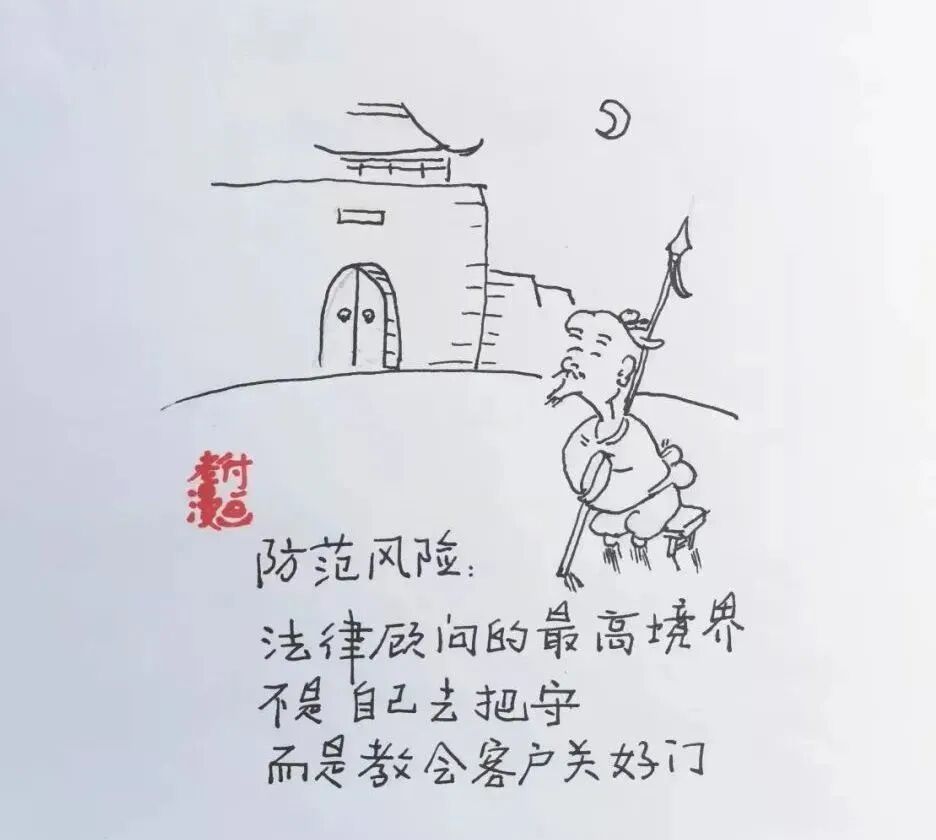 老付
漫画
防范风险:
法律顾问的最高境界
不是自己去把守
而是教会客户关好门